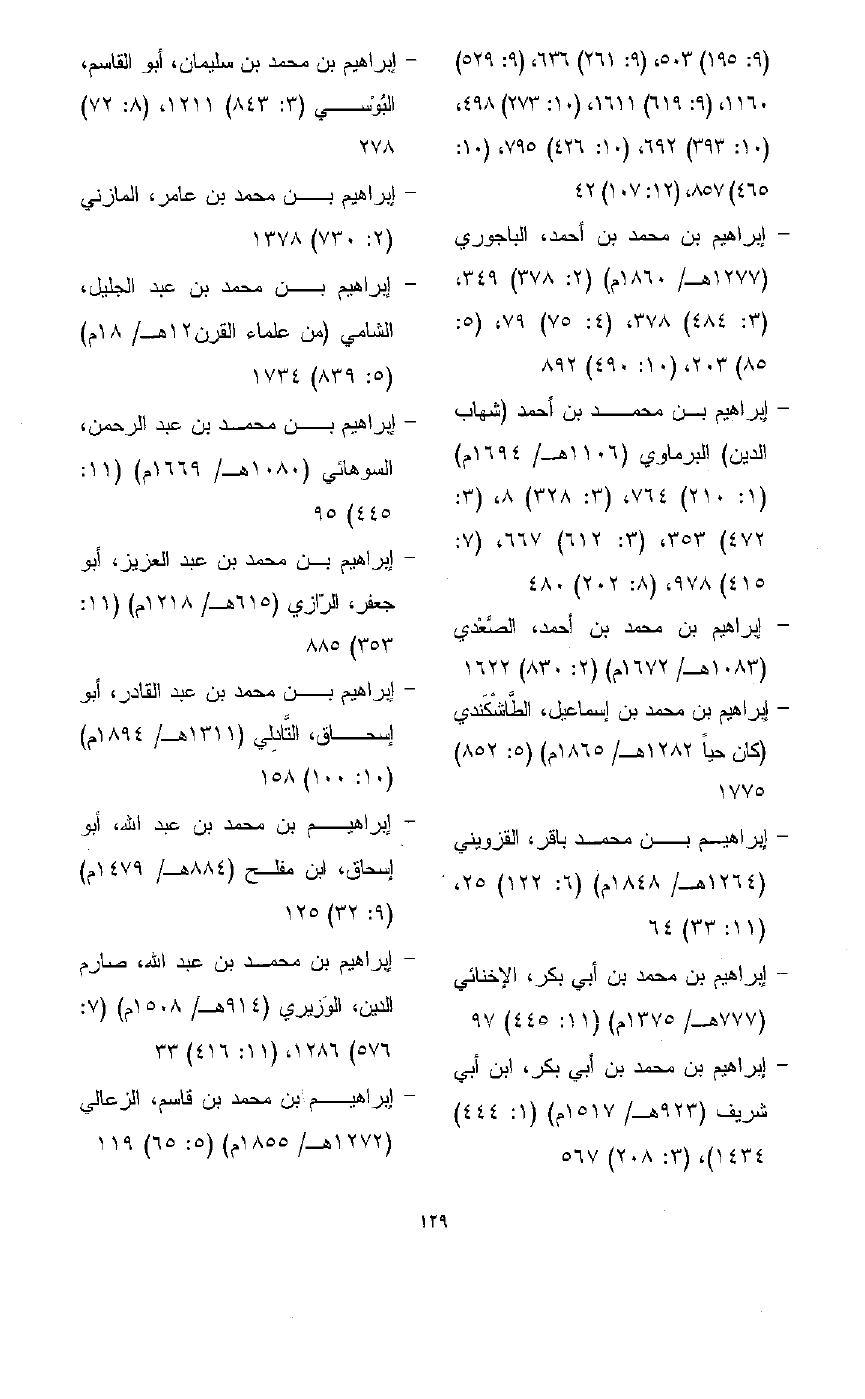 (٩: ١٩٥) ٥٠٣، (٩: ٢٦١) ٦٣٦، (٩: ٥٢٩)
١١٦٠، (٩: ٦١٩) ١٦١١، (١٠: ٢٧٣) ٤٩٨،
(١٠: ٣٩٣) ٦٩٢، (١٠: ٤٢٦) ٧٩٥، (١٠:
٤٦٥) ٨٥٧، (١٢: ١٠٧) ٤٢
- إبراهيم بن محمد بن أحمد، الباجوري
(١٢٧٧هـ/ ١٨٦٠م) (٢: ٣٧٨) ٣٤٩،
(٣: ٤٨٤) ٣٧٨، (٤: ٧٥) ٧٩، (٥:
٨٥) ٢٠٣، (١٠: ٤٩٠) ٨٩٢
- إبراهيم بن محمد بن أحمد (شهاب
الدين) البرماوي (١١٠٦هـ/ ١٦٩٤م)
(١: ٢١٠) ٧٦٤، (٣: ٣٢٨) ٨، (٣:
٤٧٢) ٣٥٣، (٣: ٦١٢) ٦٦٧، (٧:
٤١٥) ٩٧٨، (٨: ٢٠٢) ٤٨٠
- إبراهيم بن محمد بن أحمد، الصَّعْدي
(١٠٨٣هـ/ ١٦٧٢م) (٢: ٨٣٠) ١٦٢٢
- إبراهيم بن محمد بن إسماعيل، الطَّاشْكَندي
(كان حياً ١٢٨٢هـ/ ١٨٦٥م) (٥: ٨٥٢)
١٧٧٥
- إبراهيم بن محمد باقر، القزويني
(١٢٦٤هـ/ ١٨٤٨م) (٦: ١٢٢) ٢٥،
(١١: ٣٣) ٦٤
- إبراهيم بن محمد بن أبي بكر، الإخنائي
(٧٧٧هـ/ ١٣٧٥م) (١١: ٤٤٥) ٩٧
- إبراهيم بن محمد بن أبي بكر، ابن أبي
شريف (٩٢٣هـ/ ١٥١٧م) (١: ٤٤٤)
١٤٣٤)، (٣: ٢٠٨) ٥٦٧
- إبراهيم بن محمد بن سليمان، أبو القاسم،
البُوْسي (٣: ٨٤٣) ١٢١١، (٨: ٧٢)
٢٧٨
- إبراهيم بن محمد بن عامر، المازني
(٢: ٧٣٠) ١٣٧٨
- إبراهيم بن محمد بن عبد الجليل،
الشامي (من علماء القرن١٢هـ/ ١٨م)
(٥: ٨٣٩) ١٧٣٤
- إبراهيم بن محمد بن عبد الرحمن،
السوهائي (١٠٨٠هـ/ ١٦٦٩م) (١١:
٤٤٥) ٩٥
- إبراهيم بن محمد بن عبد العزيز، أبو
جعفر، الرّازي (٦١٥هـ/ ١٢١٨م) (١١:
٣٥٣) ٨٨٥
- إبراهيم بن محمد بن عبد القادر، أبو
إسحاق، التَّادِلي (١٣١١هـ/ ١٨٩٤م)
(١٠: ١٠٠) ١٥٨
- إبراهيم بن محمد بن عبد الله، أبو
إسحاق، ابن مفلح (٨٨٤هـ/ ١٤٧٩م)
(٩: ٣٢) ١٢٥
- إبراهيم بن محمد بن عبد الله، صارم
الدين، الوزيري (٩١٤هـ/ ١٥٠٨م) (٧:
٥٧٦) ١٢٨٦، (١١: ٤١٦) ٣٣
- إبراهيم بن محمد بن قاسم، الزعالي
(١٢٧٢هـ/ ١٨٥٥م) (٥: ٦٥) ١١٩
١٢٩